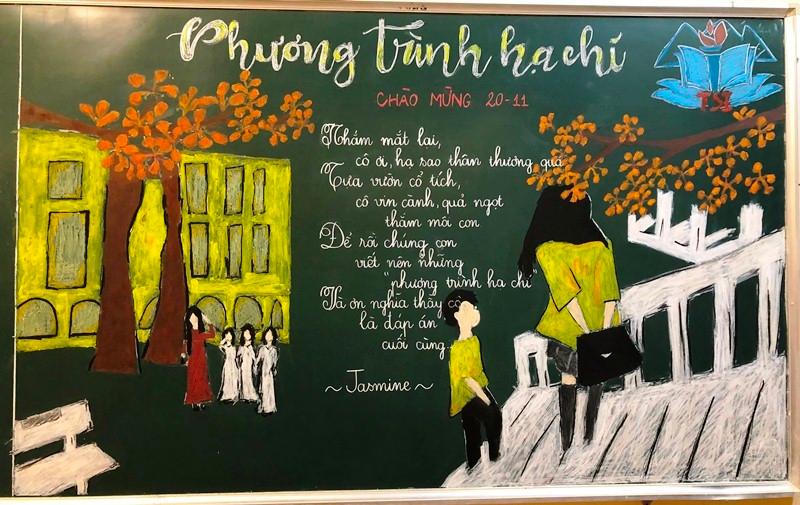 Phương trình hạ chí
TSJ
CHÀO MỪNG 20-11
Nhắm mắt lại,
cô ơi, hạ sao thân thương quá
Tựa vườn cổ tích,
cô vin cành, quả ngọt
thắm môi con
Để rồi chúng con
viết nên những
"phương trình hạ chí"
Và ơn nghĩa thầy cô
là đáp án
cuối cùng
~ Jasmine ~